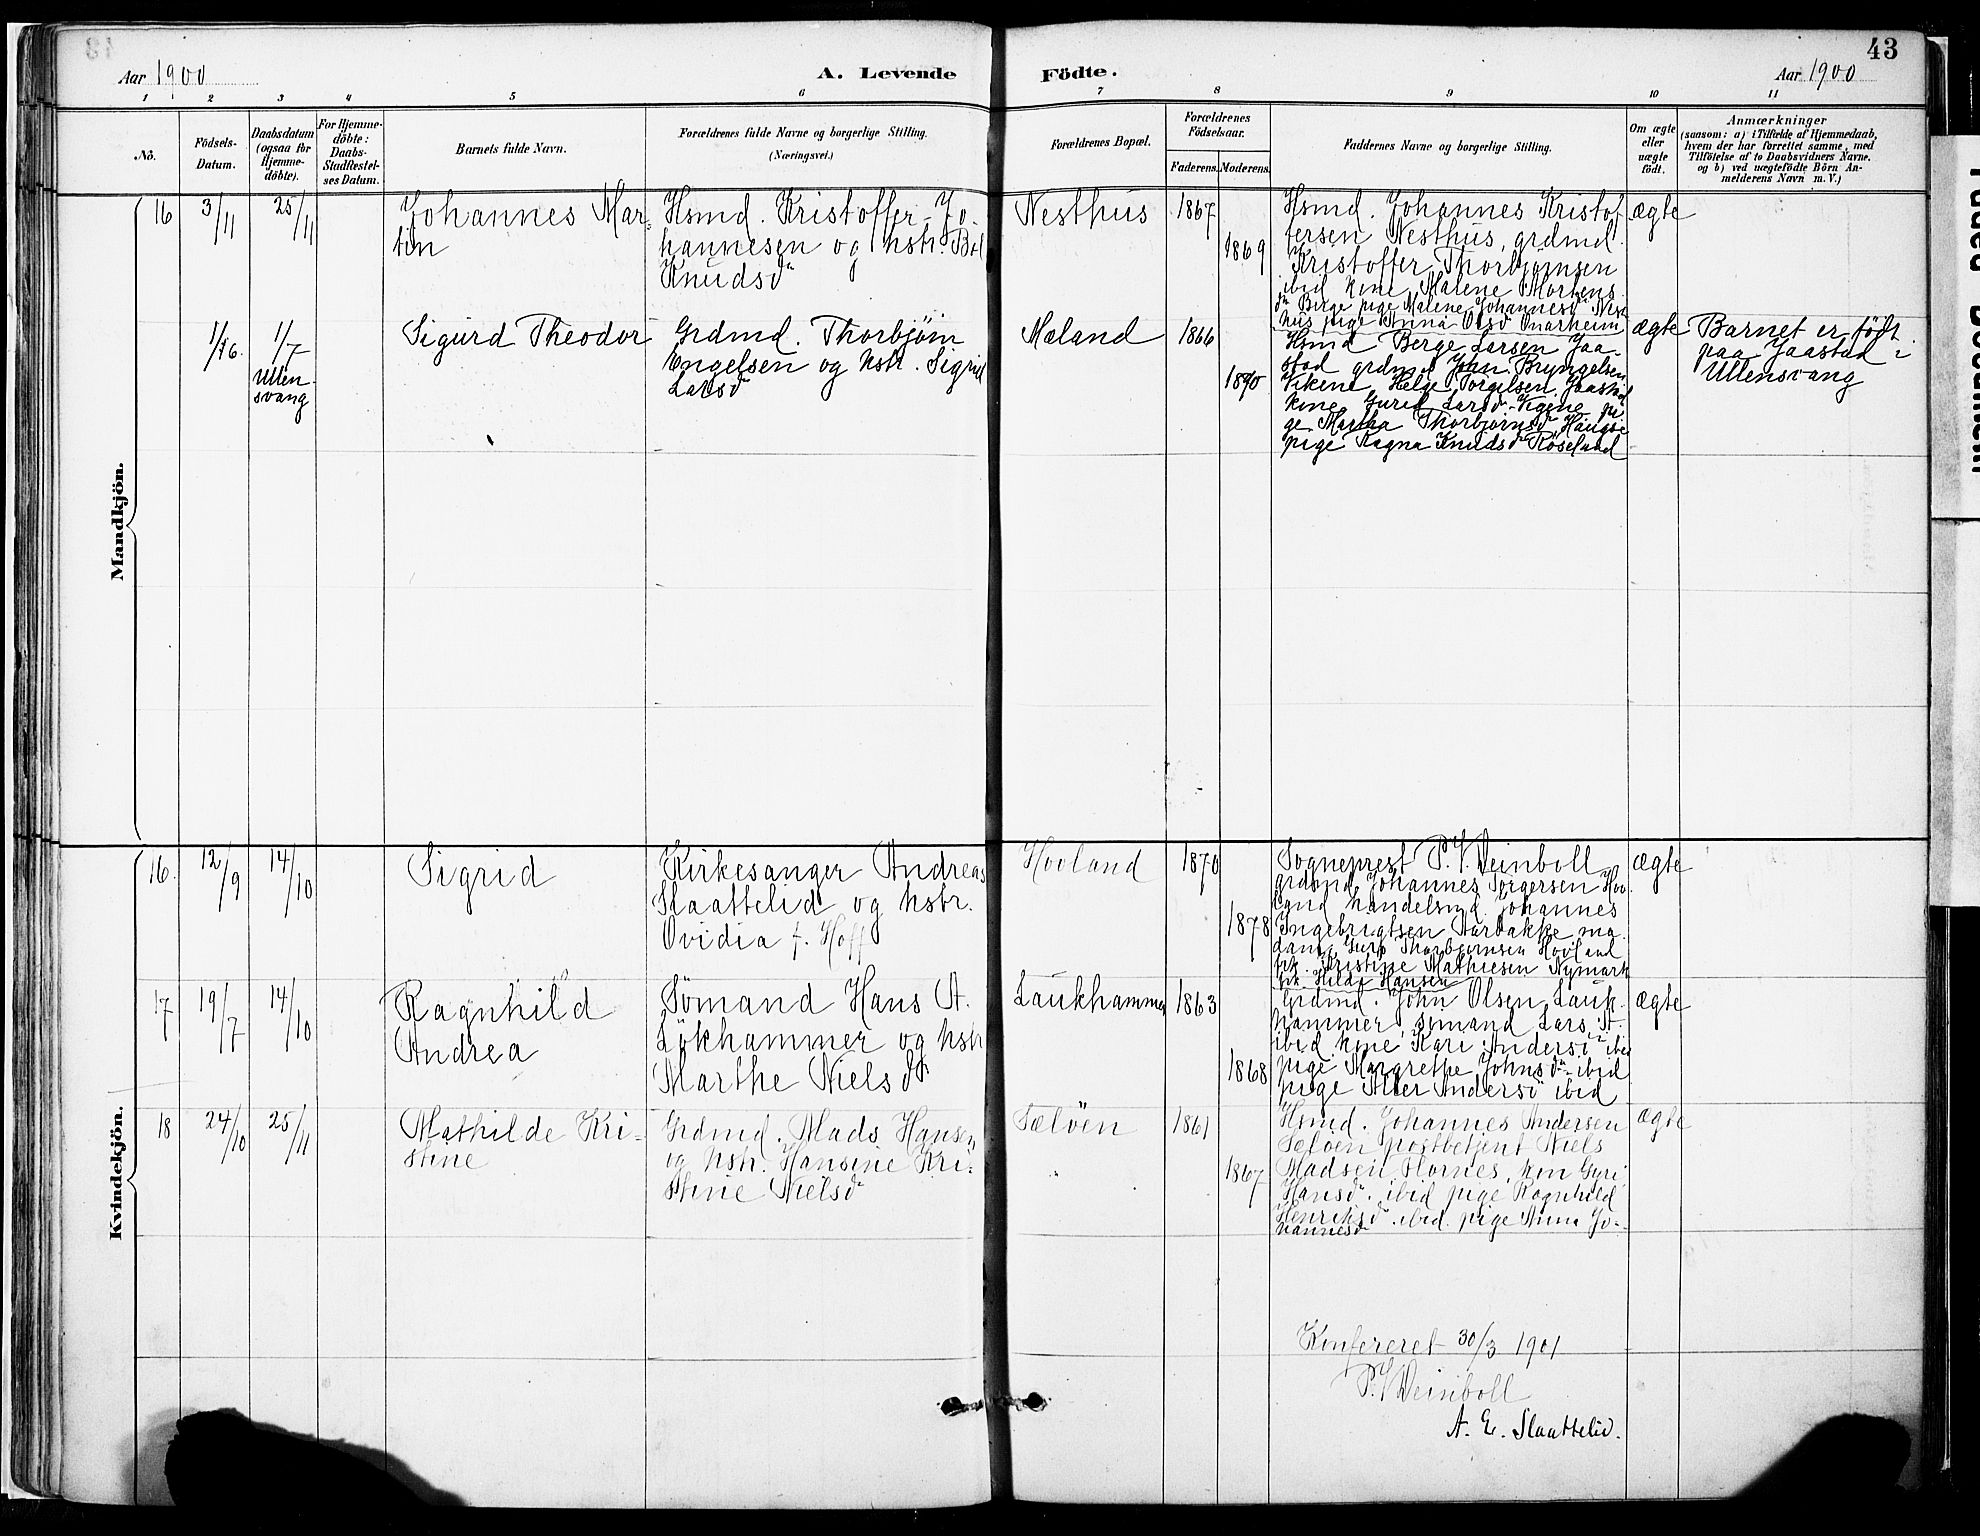 43
Aar 1900
A. Levende
Födte.
Aar 1900
1 2 3 4 5 6 7 8 9 10 11
No.
Födsels-
Datum.
Daabsdatum
(ogsaa for
Hjemme-
döbte).
For Hjemme-
döbte:
Daabs-
Stadfestel-
ses Datum.
Barnets fulde Navn.
Forældrenes fulde Navne og borgerlige Stilling.
(Næringsvei.)
Forældrenes Bopæl.
Forældrenes
Födselsaar.
Faderens.
Moderens.
Faddernes Navne og borgerlige Stilling.
Om ægte
eller
uægte
födt.
Anmærkninger
(saasom: a) i Tilfælde af Hjemmedaab,
hvem der har forrettet samme, med
Tilföielse af to Daabsvidners Navne.
og b) ved uægtefödte Börn An-
melderens Navn m. V.)
Mandkjön.
16
3/11
25/11
Johannes Mar-
tin
Hsmd. Kristoffer Jo-
hannesen og hstr.
Knudsdr
Nesthus
1867
1869
Hsmd. Johannes Kristof-
fersen Nesthus, grdmd.
Kristoffer Thorbjørnsen
ibid kone Malene Mortens
dr Berge pige Malene Johannesdr Nest
hus pige Anna Olsdr Onarheim
ægte
1/16.
1/7
Ullen-
svang
Sigurd Theodor
Grdmd. Thorbjörn
Engelsen og hstr. Sigrid
Larsdr
Mæland
1866
1870
Hsmd Berge Larsen Jaa-
stad grdmd John Bryngelsen
Vikene, Helge Torgilsen Jaastad
kone Gurid Larsdr Vigene pi
ge Martha Thorbjørnsdr Haugse
pige Ragna Knudsdr Röseland
ægte
Barnet er födt
paa Jaastad i
Ullensvang
Kvindekjön.
16
12/9
14/10
Sigrid
Kirkesanger Andreas
Slaattelid og hstr.
Ovidia f. Hoff
Hovland
1870
1878
Sogneprest P. V. Deinboll
grdmd Johannes Torgersen Hov-
land handelsmd. Johannes
Ingebrigtsen Aarbakke ma
dam Guro Thorbjørnsen Hovland
frk. Kristine Mathiesen Nymark
frk Hilda Hansen
ægte
17
19/7
14/10
Ragnhild
Andrea
Sömand Hans A.
Lökhammer og hstr
Marthe Nielsdr
Laukhammer
1863
1868
Grdmd. John Olsen Lauk-
hammer, sömand Lars A.
ibid kone Kari Andersdr ibid
pige Margrethe Johnsdr ibid
pige Andersdr ibid
ægte
18
24/10
25/11
Mathilde Kri-
stine
Grdmd. Mads Hansen
og hstr. Hansine Kri-
stine Nielsdr
Sælöen
1861
1867
Hsmd. Johannes Andersen
Sælöen postbetjent Niels
Madsen Flornes, kon Guri
Hansdr. ibid pige Ragnhild
Henriksdr. ibid. pige Anna Jo-
hannesdr
ægte
Konfereret 30/3 1901
P. V. Deinboll
A. E. Slaattelid.